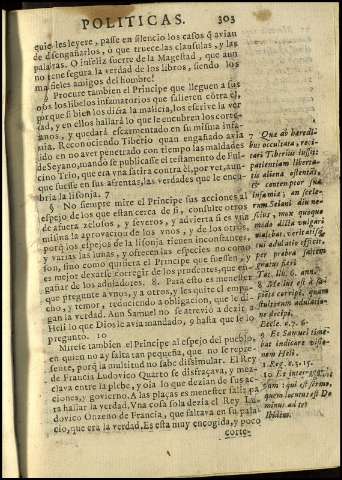 POLITICAS. 303
quie les leyere, passe en silencio los casos q̃ avian
de desengañarlos, ò que truece las clausulas, y las
palabras. O infeliz suerte de la Magestad, que aun
no tenẽ segura la verdad de los libros, siendo los
mas fieles amigos del hombre!
§ Procure tambien el Principe que lleguen a sus
ojos los libelos infamatorios que salieren contra èl,
por que si bien los dicta la malicia, los escrive la ver
dad, y en ellos hallarà lo que le encubren los corte-
sanos, y quedarà escarmentado en su misma infa-
mia. Reconociendo Tiberio quan engañado avia
sido en no aver penetrado con tiempo las maldades
de Seyano, mandò se publicasse el testamento de Ful-
cino Trio, que era vna satira contra èl, por ver, aun-
que fuesse en sus afrentas, las verdades que le encu-
bria la lisonja. 7
§ No siempre mire el Principe sus acciones al
espejo de los que estan cerca de si, consulte otros
de afuera zelosos, y severos, y advierta si es vna
misma la aprovacion de los vnos, y de los otros,
porq̃ los espejos de la lisonja tienen inconstantes,
y varias las lunas, y ofrecen las especies no como
son, sino como quisiera el Principe que fuessen, y
es mejor dexarse corregir de los prudentes, que en-
gañar de los aduladores. 8 Para esto es menester
que pregunte a vnos, y a otros, y les quite el empa-
cho, y temor, reduciendo a obligacion, que le di-
gan la verdad. Aun Samuel no se atreviò a dezir a
Heli lo que Dios le avia mandado, 9 hasta que se lo
pregunto. 10
Mirese tambien el Principe al espejo del pueblo,
en quien no ay falta tan pequeña, que no se repre-
sente, porq̃ la multitud no sabe dissimular. El Rey
de Francia Ludovico Quarto se disfraçava, y mez-
clava entre la plebe, y oìa lo que dezian de sus ac-
ciones, y govierno. A las plaças es menester salir pa
ra hallar la verdad. Vna cosa sola dezia el Rey Lu-
dovico Onzeno de Francia, que faltava en su pala-
cio, que era la verdad. Es esta muy encogida, y poco
corte-
7 Que ab heredi-
bus occultata, reci-
tari Tiberius iussit
patientiam liberta-
tis alienæ ostentãs,
et contemptor suæ
infamiæ; an scele-
rum Seiani diu ne-
scius, mox quoquo
modo dicta vulgari
malebat, veritatisq́;
cui adulatio officit,
per probra saltem
gnarus fieri.
Tac. lib. 6. ann.
8 Melius est à sa-
piẽte corripi, quàm
stultorum adulatio-
ne decipi.
Eccle. c. 7. 6.
9 Et Samuel time-
bat indicare visio-
nem Heli.
1. Reg. c. 3. 15.
10 Et interrogavit
eum: qui est sermo,
quem locutus est Do-
minus ad te?
Ibidem.